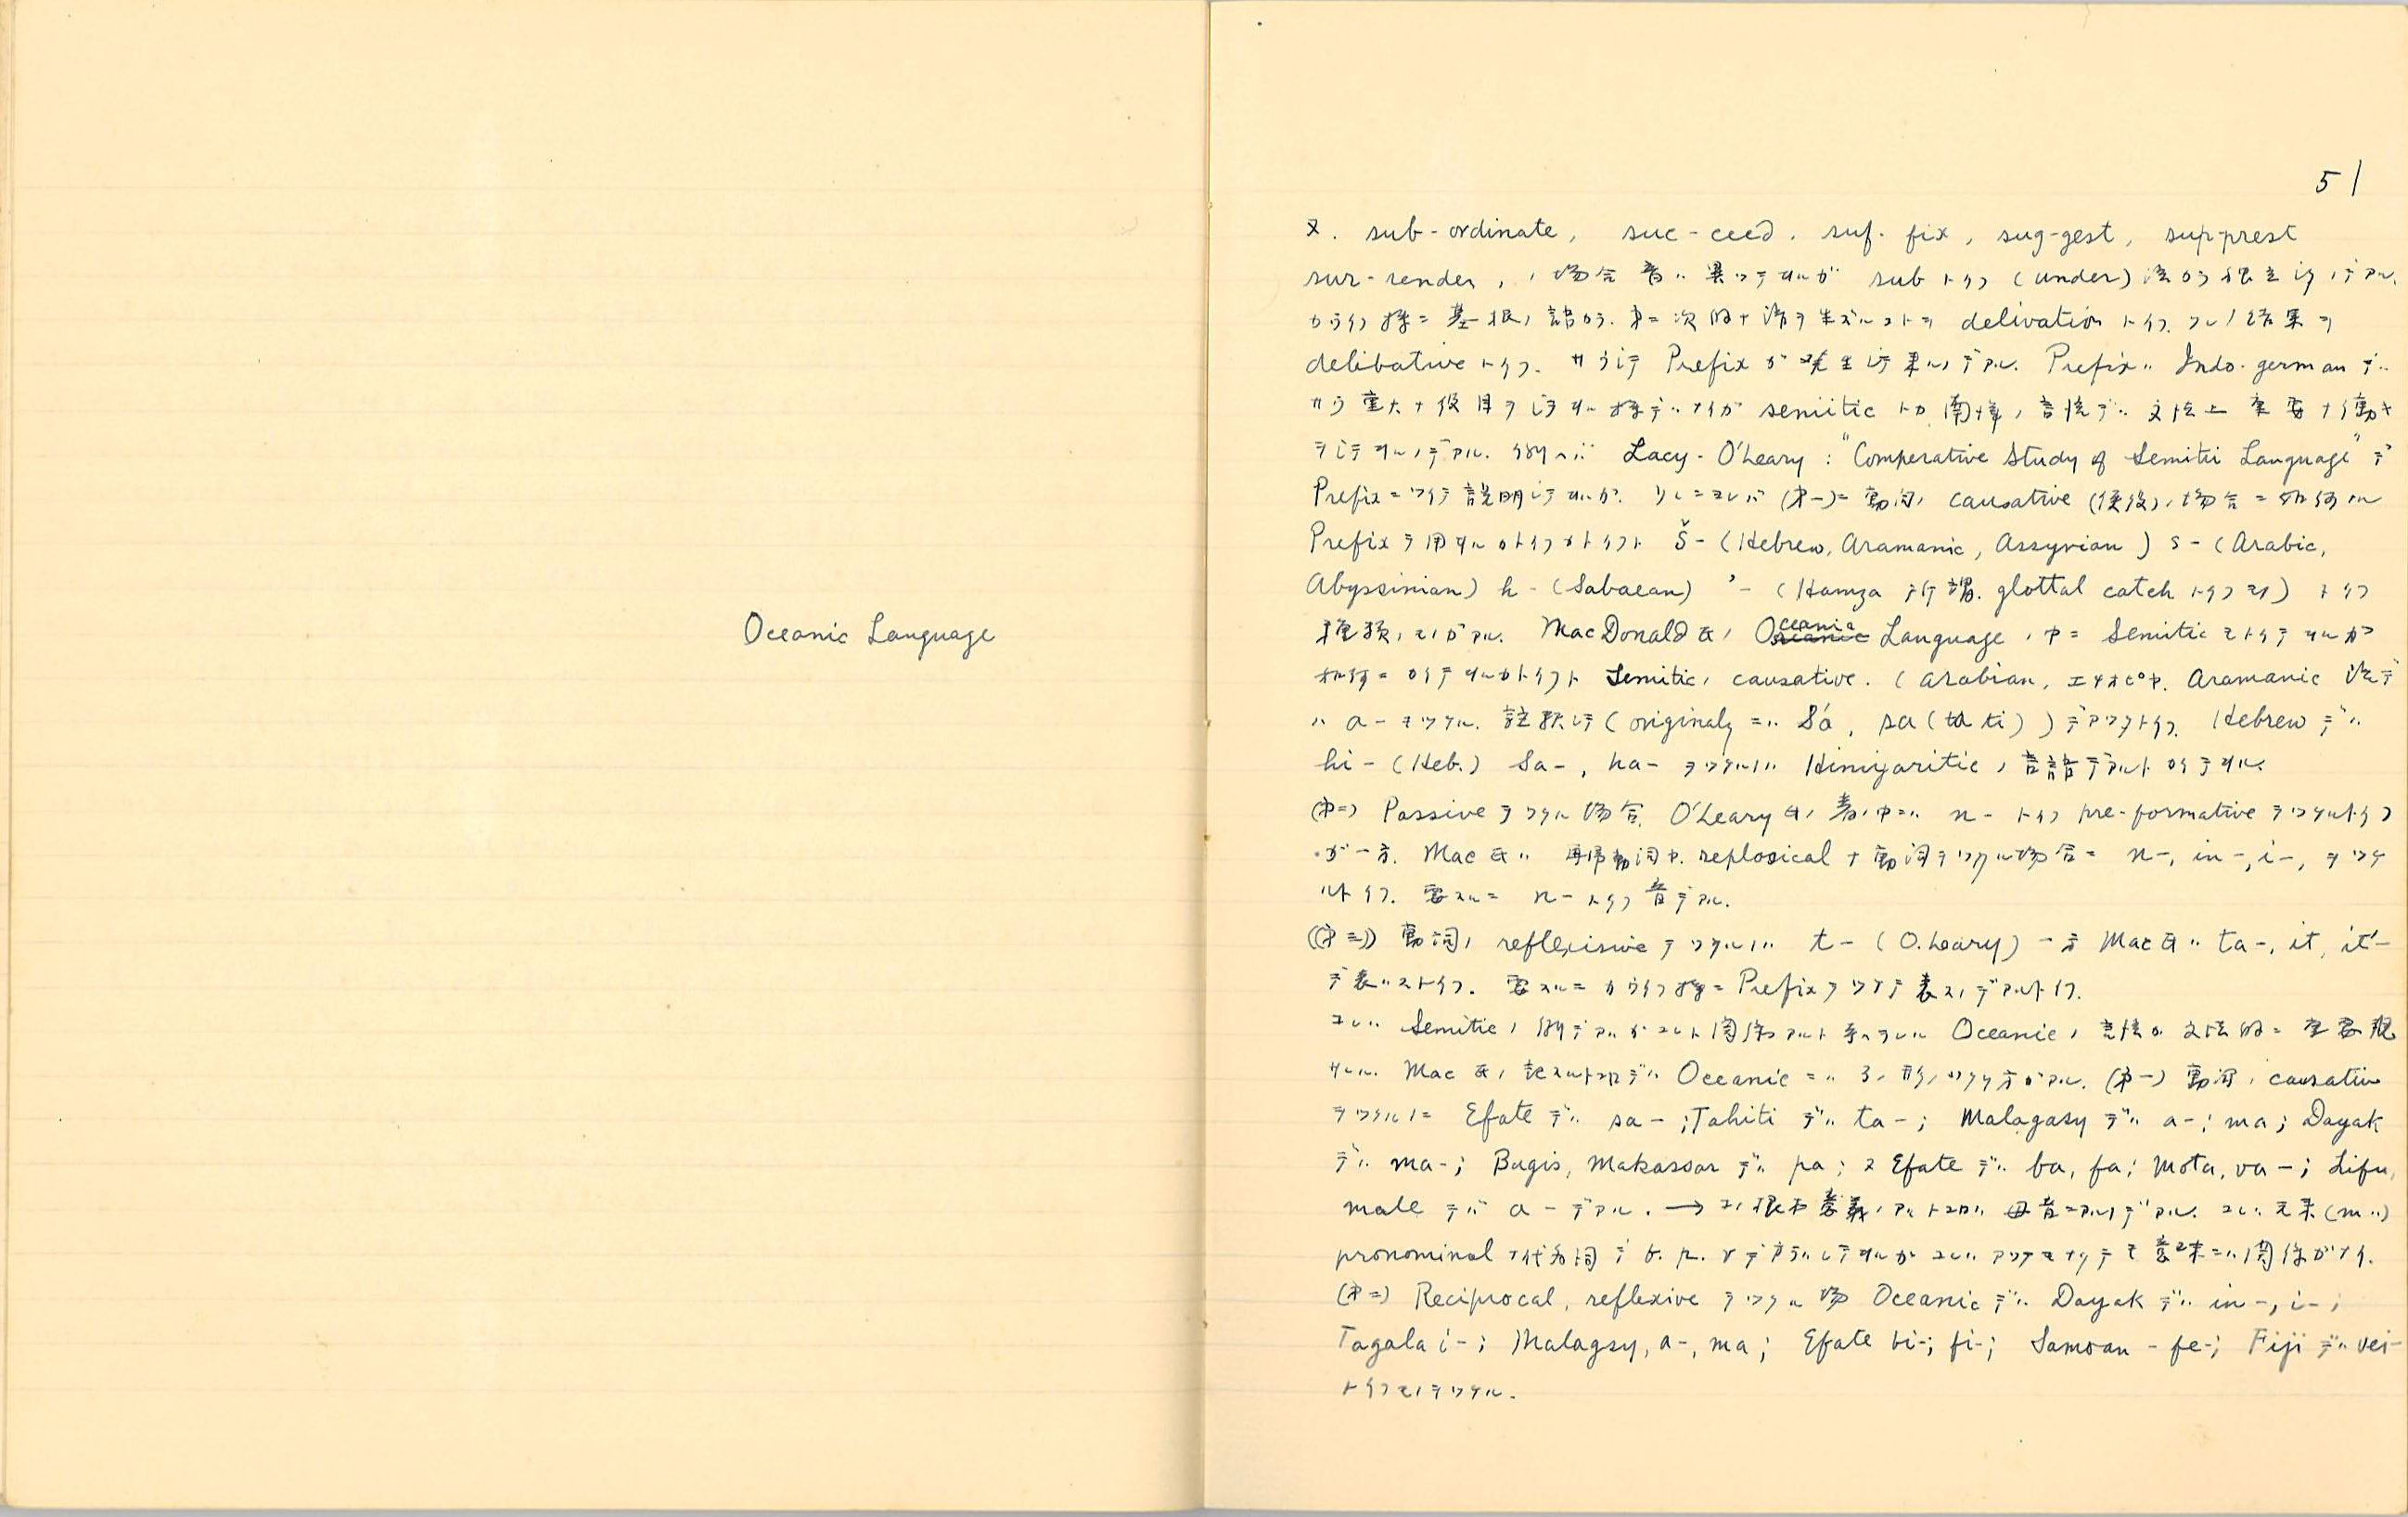 Oceanic Language
51
又. sub-ordinate, suc-ceed. suf-fix, sug-gest, sup-prest
sur-render, ノ場合 音ハ異ツテヰルガ sub トイフ (under)
カライフ様ニ基根ノ語カラ. 第二次的ナ語ヲ生ズルコトヲ delivation トイフ. ソノ結果ヲ
delibative トイフ. カラシテ Prefix ガ発生シテ来ルノデアル. Prefixハ Indo-german デハ
カラ重大ナ役目ヲシテヰル様デハナイガ semitic トカ南洋ノ言語デハ文法上重要ナ働キ
ヲシテヰルノデアル. 例ヘバ Lacy-O'Leary : "Comperative Study of Semitic Language" デ
Prefixニツイテ説明シテヰルガ. ソレニヨレバ (第一)ニ動詞ノ causative (使役)ノ場合ニ如何ナル
Prefix ヲ用ヰルカトイフカトイフト š- (Hebrew, Aramanic, Assyrian) s- (Arabic,
Abyssinian) h- (Sabaean) ’- (Hamza 所謂. glottal catch トイフモノ) トイフ
種類ノモノガアル. MacDonald氏ノ Oceanic Language ノ中ニ Semitic モトイテヰルガ
如何ニカイテヰルカトイフト Semiticノ causative. (Arabian, エチオピヤ. Aramanic 語デ
ハ a- ヲツケル. 註釈シテ (originaly ニハ Sá, sa (ta ti)) デアツタトイフ. Hebrew デハ
hi- (Heb.) Sa-, ha- ヲツケルノハ Himyaritic ノ言語デアルトカイテヰル.
(第二) Passive ヲツケル場合. O'Leary氏ノ書ノ中ニハ n- トイフ pre-formative ヲツケルトイフ
ガ一方. Mac氏ハ 再帰動詞ヤ. replosical ナ動詞ヲツケル場合ニ n-, in-, i-, ヲツケ
ルトイフ. 要スルニ n- トイフ音デアル.
((第三)) 動詞ノ reflexisive ヲツケルノハ t- (O.Leary) 一方 Mac氏ハ ta-, it, it'-
デ表ハストイフ. 要スルニカライフ様ニ Prefix ヲツケテ表スノデアルトイフ.
コレハ Semitic ノ例デアルガコレト関係アルト考ヘラレル Oceanic ノ言語ガ文法的ニ重要視
サレル. Mac氏ノ記スルトコロデハ Oceanic ニハ 3ノ形ノツケ方ガアル. (第一) 動詞ノ causativ
ヲツケルノニ Efate デハ sa-; Tahiti デハ ta-; Malagasy デハ a-; ma; Dayak
デハ ma-; Bugis, Makassar デハ pa; 又 Efate デハ ba, fa; Mota, va-; Lifu,
male デハ a- デアル. → コノ根本意義ノアルトコロハ母音ニアルノデアル. コレハ元来 (m ハ)
pronominal ナ代名詞デ b. p. v デ表ハシテヰルガコレハアツテモナクテモ意味ニハ関係ガナイ.
(第二) Reciprocal, reflexive ヲツケル場 Oceanic デハ Dayak デハ in-, i-;
Tagala i-; Malagsy, a-, ma; Efate bi-; fi-; Samoan - fe-; Fiji デハ vei-
トイフモノヲツケル.